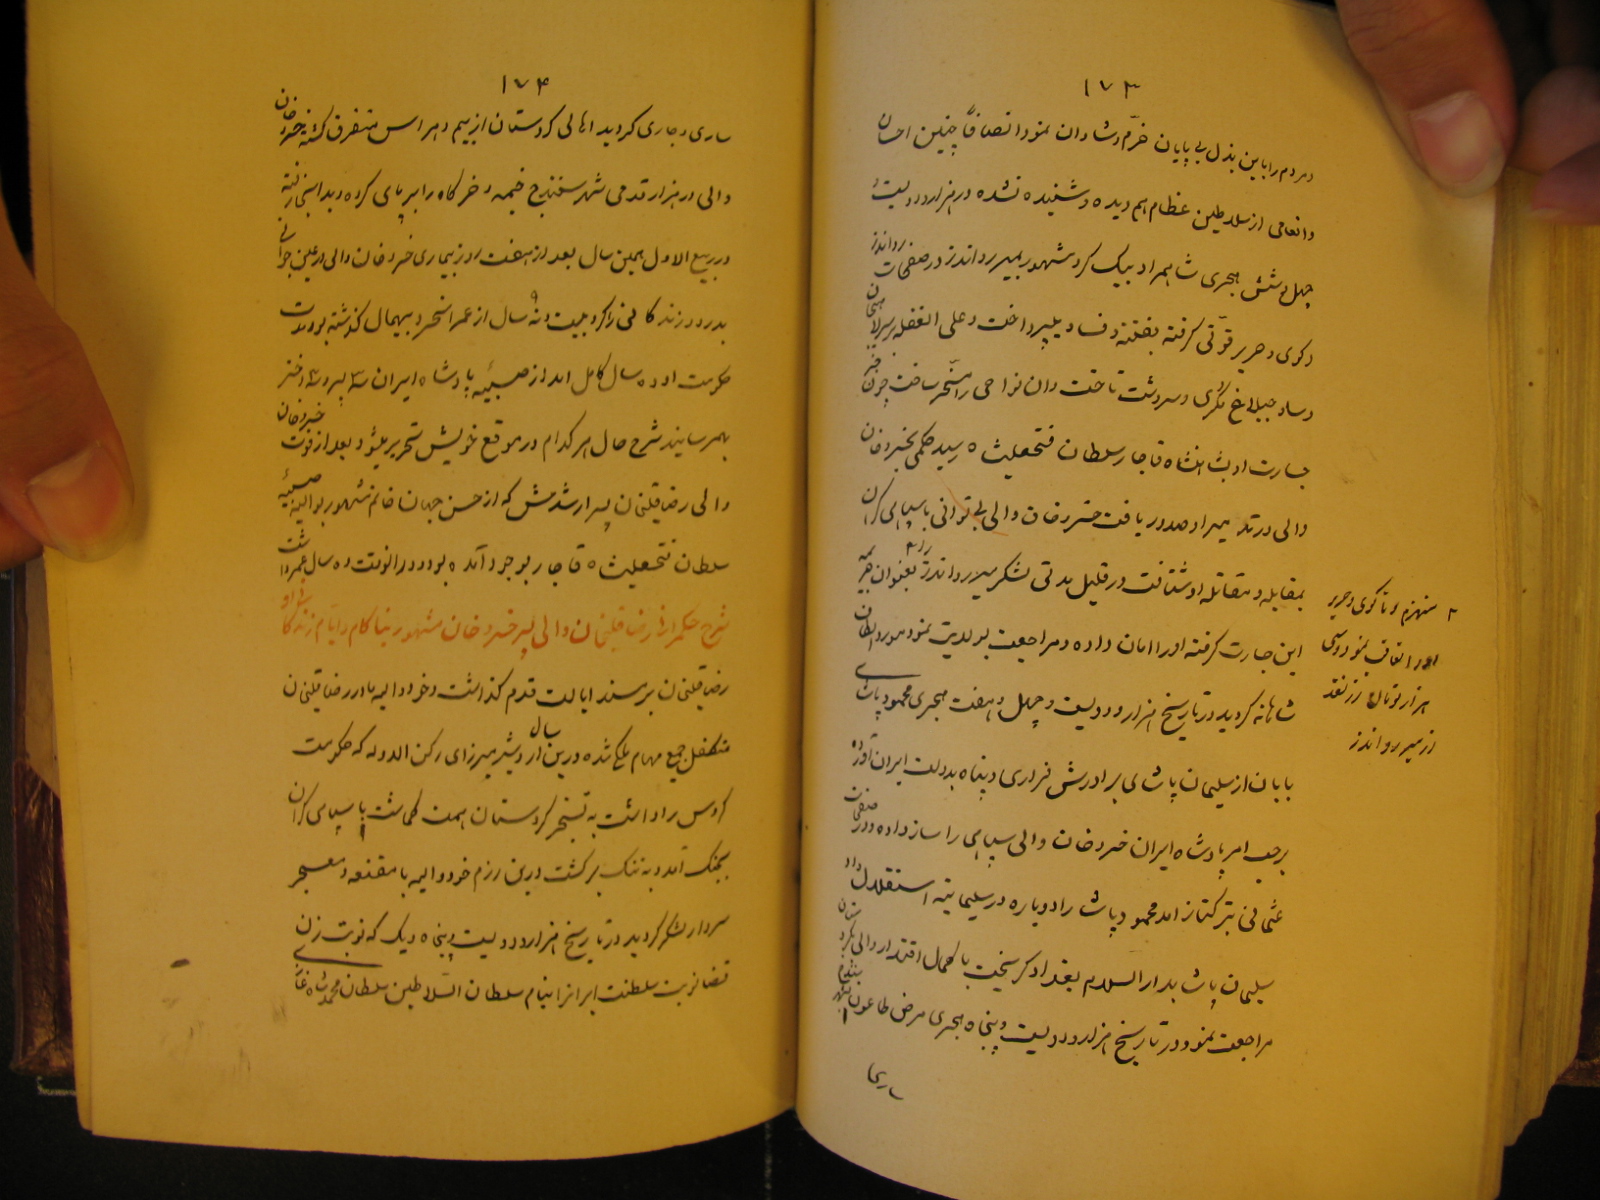 ١٧٣
و مردم را باین بذل بی پایان خرّم و شادان نمود انصافاً چنین احسان
و انعامی از سلاطین عظام هم دیده و شنیده نشده در هزار و دویست و
چهل و شش هجری شاهمراد بیک کرد مشهور بمیر رواندز در صفحات رواندز
و کوی و حریر قوّتی گرفته بفتنه و فساد بپرداخت و علی الغفله بر سر لاهیجان
و ساوجبلاغ مکری و سردشت تاخت و ان نواحی را مسخّر ساخت چون خبر
جسارت او بشاهنشاه قاجار سلطان فتحعلیشاه رسید حکمی بخسروخان
والی در تدمیر او صدور یافت خسروخان والی بی توانی با سپاهی گران
بمقابله و مقاتله او شتافت در قلیل مدتی لشکر میر رواندز را ۲ بعنوان جریمه
۲ منهزم و تا کوی و حریر
او را تعاقب نمود و سی
هزار تومان زر نقد
از میر رواندز
این جسارت گرفته او را امان داده و مراجعت بولایت نمود مورد الطاف
شاهانه گردید در تاریخ هزار و دویست و چهل و هفت هجری محمود پاشای
بابان از سلیمان پاشای برادرش فراری و پناه بدولت ایران آورده
برحسب امر پادشاه ایران خسروخان والی سپاهی را ساز داده و در صفحات
عثمانی بترکتاز امد محمود پاشا را دوباره در سلیمانیه استقلال داد
سلیمان پاشا بدار السلام بغداد گریخت با کمال اقتدار والی بکردستان
مراجعت نمود و در تاریخ هزار و دویست و پنجاه هجری مرض طاعون
ساری
١٧۴
ساری و جاری گردید اهالی کردستان از بیم و هراس متفرق گشته خسروخان
والی در هزار قدمی شهر سنندج خیمه و خرگاه را برپای کرده و بدانجا رفته
در ربیع الاول همین سال بعد از هفت روز بیماری خسروخان والی در عین جوانی
بدرود زندگانی را کرد بیست و نه سال از عمر انسخرد بیهمال گذشته بود مدت
حکومت او ده سال کامل امد از صبیّه پادشاه ایران سه پسر و سه دختر
بهمرسانید شرح حال هر کدام در موقع خویش تحریر میشود بعد از فوت خسروخان
والی رضاقلیخان پسر ارشدش که از حسن جهان خانم مشهور بوالیه صبیّه
سلطان فتحعلیشاه قاجار بوجود آمده بود در انوقت ده سال عمر داشت
شرح حکمرانی رضاقلیخان والی پسر خسروخان مشهور بناکام و ایام زندگانی او
رضاقلیخان بر مسند ایالت قدم گذاشت و خود والیه مادر رضاقلیخان
متکفل جمیع مهام ملکی شده در این سال اردشیر میرزای رکن الدوله که حکومت
گروس را داشت به تسخیر کردستان همت گماشت با سپاهی گران
بجنگ آمد و به ننگ برگشت در این رزم خود والیه با مقنعه و معجر
سردار لشکر گردید در تاریخ هزار و دویست و پنجاه و یک که نوبت زن
قضا نوبت سلطنت ایرانرا بنام سلطان السّلاطین سلطان محمد شاه غازی